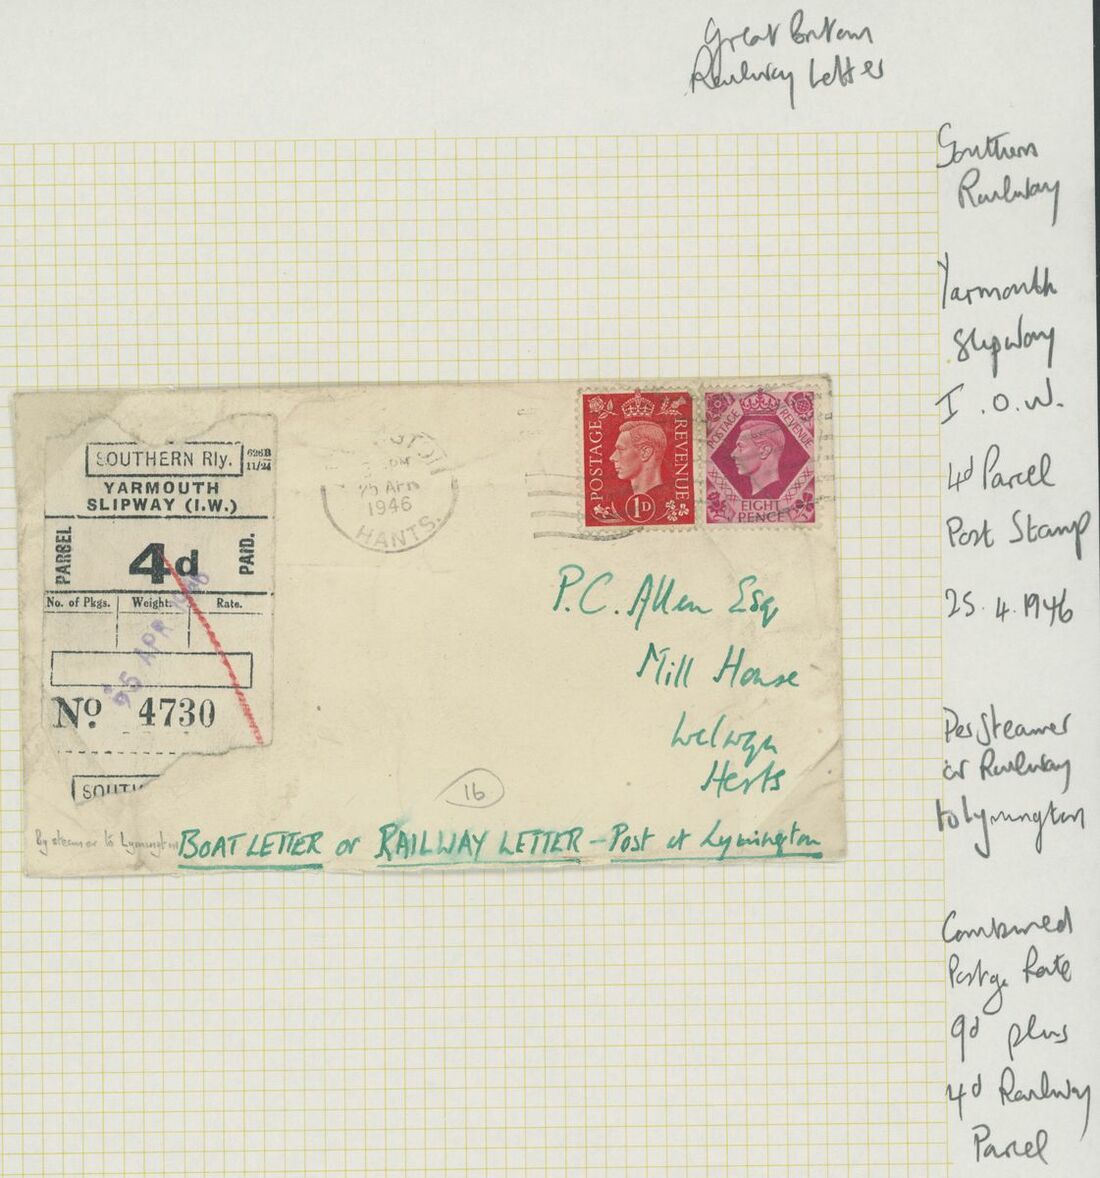 Great Britain
Railway Letter
Southern
Railway
Yarmouth
Slipway
I.O.W.
4d Parcel
Post Stamp
25.4.1946
Per Steamer
or Railway
to Lymington
Combined
Postge Rate
9d plus
4d Railway
Parcel
SOUTHERN Rly.
626B
11/24
YARMOUTH
SLIPWAY (I.W.)
PARCEL
4d
PAID.
No. of Pkgs.
Weight.
Rate.
25 APR 1946
No. 4730
SOUTH
PM
25 APR
1946
HANTS.
POSTAGE
REVENUE
1D
POSTAGE
REVENUE
EIGHT
PENCE
P.C. Allen Esq
Mill House
Welwyn
Herts
16
By steamer to Lymington
BOAT LETTER or RAILWAY LETTER – Post at Lymington